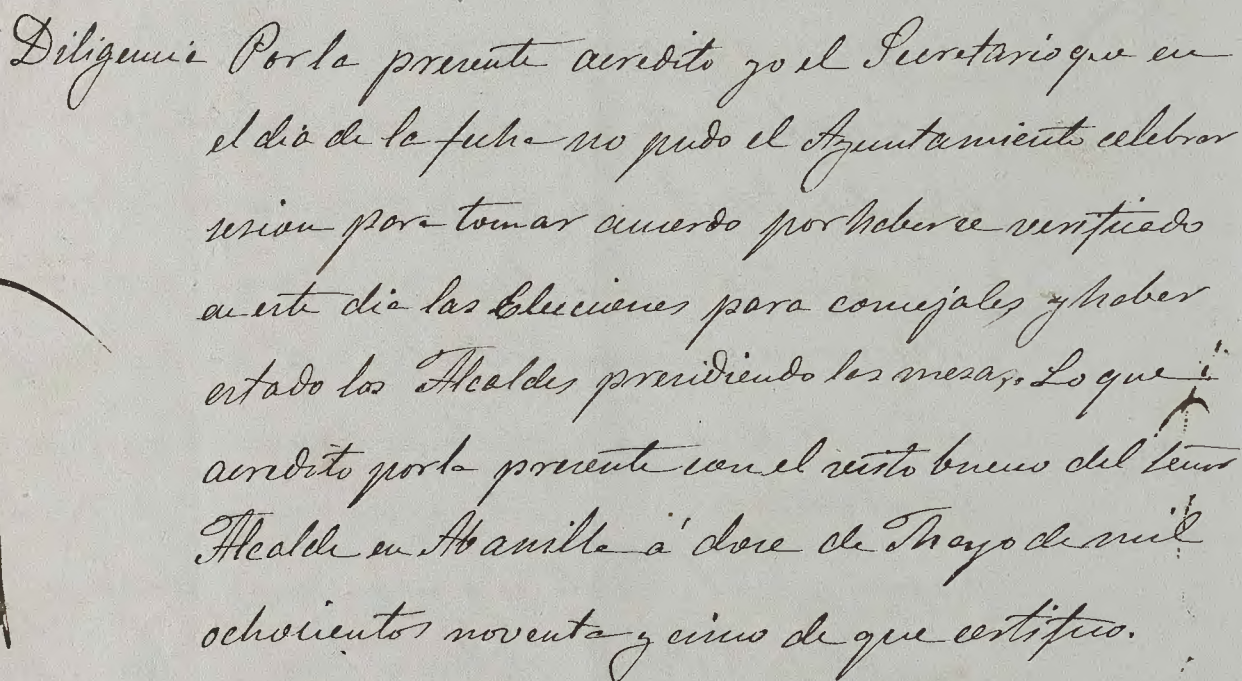 Diligencia Por la presente acredito yo el Secretario que en
el dia de la fecha no pudo el Ayuntamiento celebrar
sesion para tomar acuerdo por haberse verificado
en este dia las Elecciones para concejales, y haber
estado los Alcaldes presidiendo las mesas. Lo que
acredito por la presente con el visto bueno del Señor
Alcalde en Abanilla á doce de Mayo de mil
ochocientos noventa y cinco de que certifico.